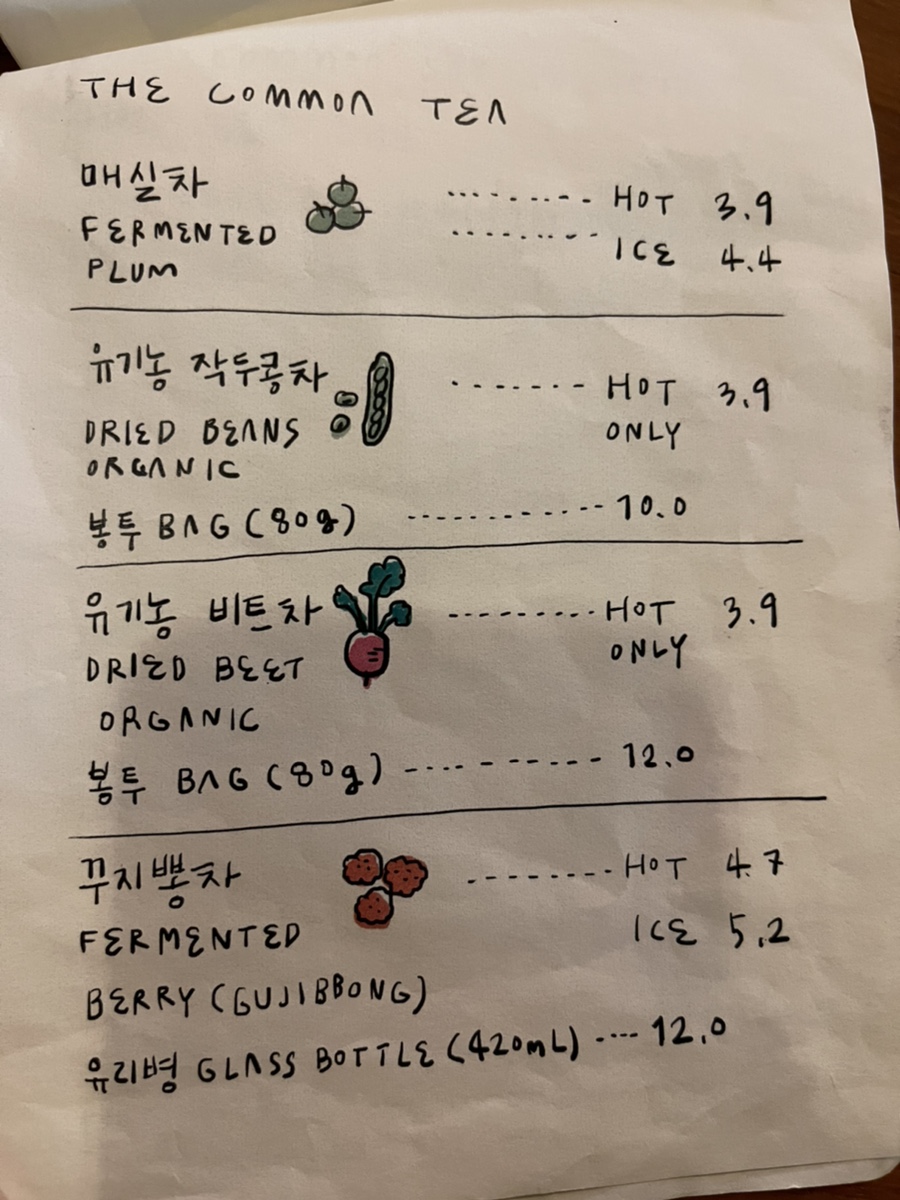 THE COMMON TEA
매실차 ............ HOT 3.9
FERMENTED ............ ICE 4.4
PLUM
유기농 작두콩차 ....... HOT 3.9
DRIED BEANS ONLY
ORGANIC
봉투 BAG (80g) ............ 10.0
유기농 비트차 ......... HOT 3.9
DRIED BEET ONLY
ORGANIC
봉투 BAG (80g) ............ 12.0
꾸지뽕차 ......... HOT 4.7
FERMENTED ICE 5.2
BERRY (GUJIBBONG)
유리병 GLASS BOTTLE (420mL) ..... 12.0